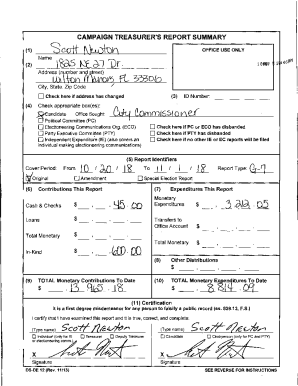 CAMPAIGN TREASURER'S REPORT SUMMARY
(1) Scott Newton
OFFICE USE ONLY
Name
(2) 1825 NE 27 Dr.
Address (number and street)
Wilton Manors FL 33306
City, State, Zip Code
Check here if address has changed
(3) ID Number:
(4) Check appropriate box(es):
Candidate Office Sought: City Commissioner
Political Committee (PC)
Electioneering Communications Org. (ECO)
Check here if PC or ECO has disbanded
Party Executive Committee (PTY)
Check here if PTY has disbanded
Independent Expenditure (IE) (also covers an
Check here if no other IE or EC reports will be filed
individual making electioneering communications)
(5) Report Identifiers
Cover Period: From 10 / 20 / 18 To 11 / 1 / 18 Report Type: G-7
Original Amendment Special Election Report
(6) Contributions This Report
(7) Expenditures This Report
Cash & Checks $ 45.00
Monetary
Expenditures $ 3,212.05
Loans $
Transfers to
Office Account $
Total Monetary $
Total Monetary $
In-Kind $ 600.00
(8) Other Distributions
$
(9) TOTAL Monetary Contributions To Date
$ 13,965.18
(10) TOTAL Monetary Expenditures To Date
$ 8,814.09
(11) Certification
It is a first degree misdemeanor for any person to falsify a public record (ss. 839.13, F.S.)
I certify that I have examined this report and it is true, correct, and complete:
(Type name) Scott Newton
(Type name) Scott Newton
Individual (only for IE Treasurer Deputy Treasurer
or electioneering comm.)
Candidate Chairperson (only for PC and PTY)
X
X
Signature
Signature
DS-DE 12 (Rev. 11/13)
SEE REVERSE FOR INSTRUCTIONS